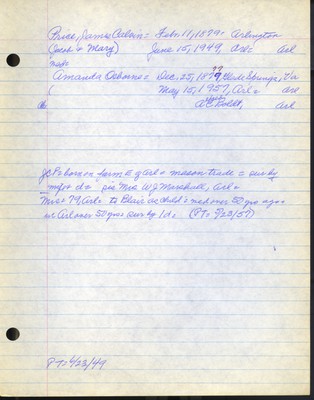 Price, James Calvin = Feb. 11, 1879 = Arlington
(Jacob + Mary) June 15, 1949, are = arl
Amanda Osborne = Dec. 25, 1879, Springs, Va
( May 15, 1957, Arl = are
arl
JCP born on farm E of Arl + mason trade = surv by
+ d = Mrs W J Marshall, Arl =
Mrs = 79, Arl = to Blair as child = med over 50 yrs ago =
in Arl over 50 yrs = surv by 1 d. (PT = 5/23/57)
PT = 6/23/49